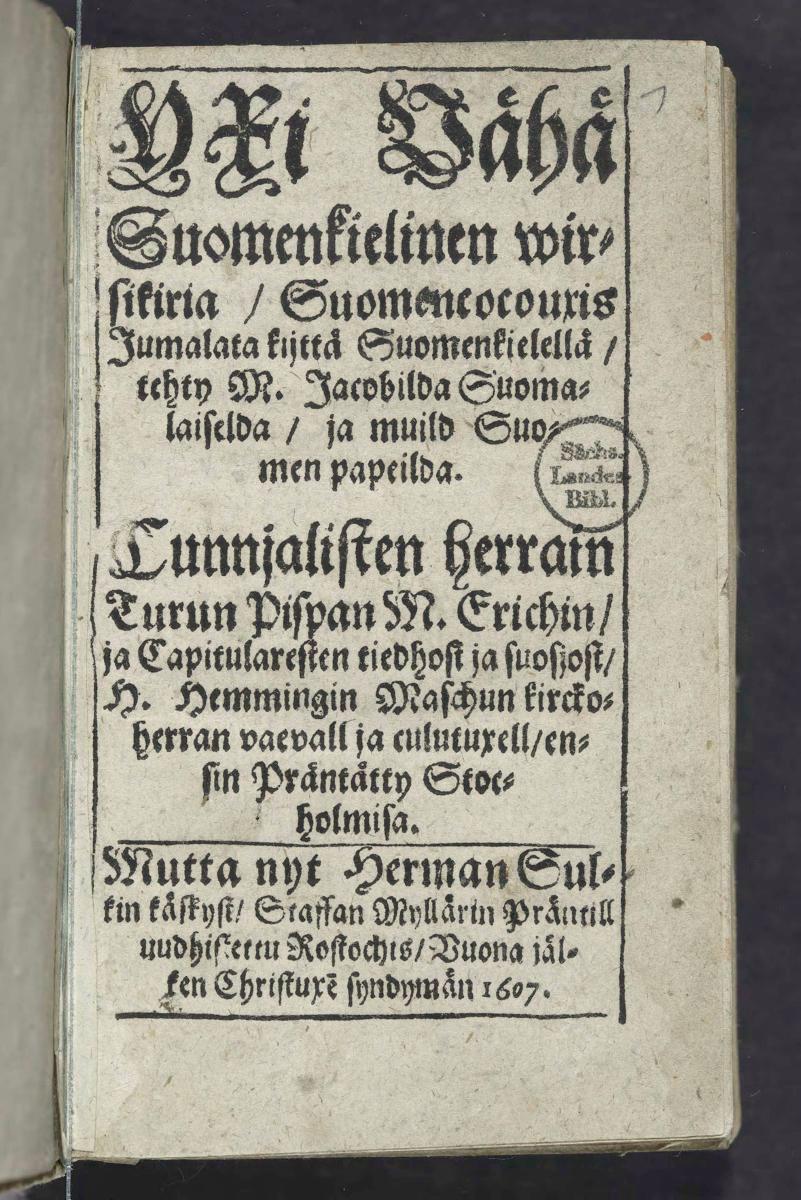 YXi Vähä
Suomenkielinen wir⸗
sikiria / Suomencocouxis
Jumalata kijttä Suomenkielellä /
tehty M. Jacobilda Suoma⸗
laiselda / ja muild Suo⸗
men papeilda.
Sächs.
Landes-
Bibl.
Cunnjalisten herrain
Turun Pispan M. Erichin/
ja Capitularesten tiedhost ja suosjost/
H. Hemmingin Maschun kircko⸗
herran vaevall ja culutuxell/en⸗
sin Präntätty Stoc⸗
holmisa.
Mutta nyt Herman Sul⸗
kin käskyst/ Staffan Myllärin Präntill
uudhistettu Rostochis/Vuona jäl⸗
ken Christuxē syndymän 1607.